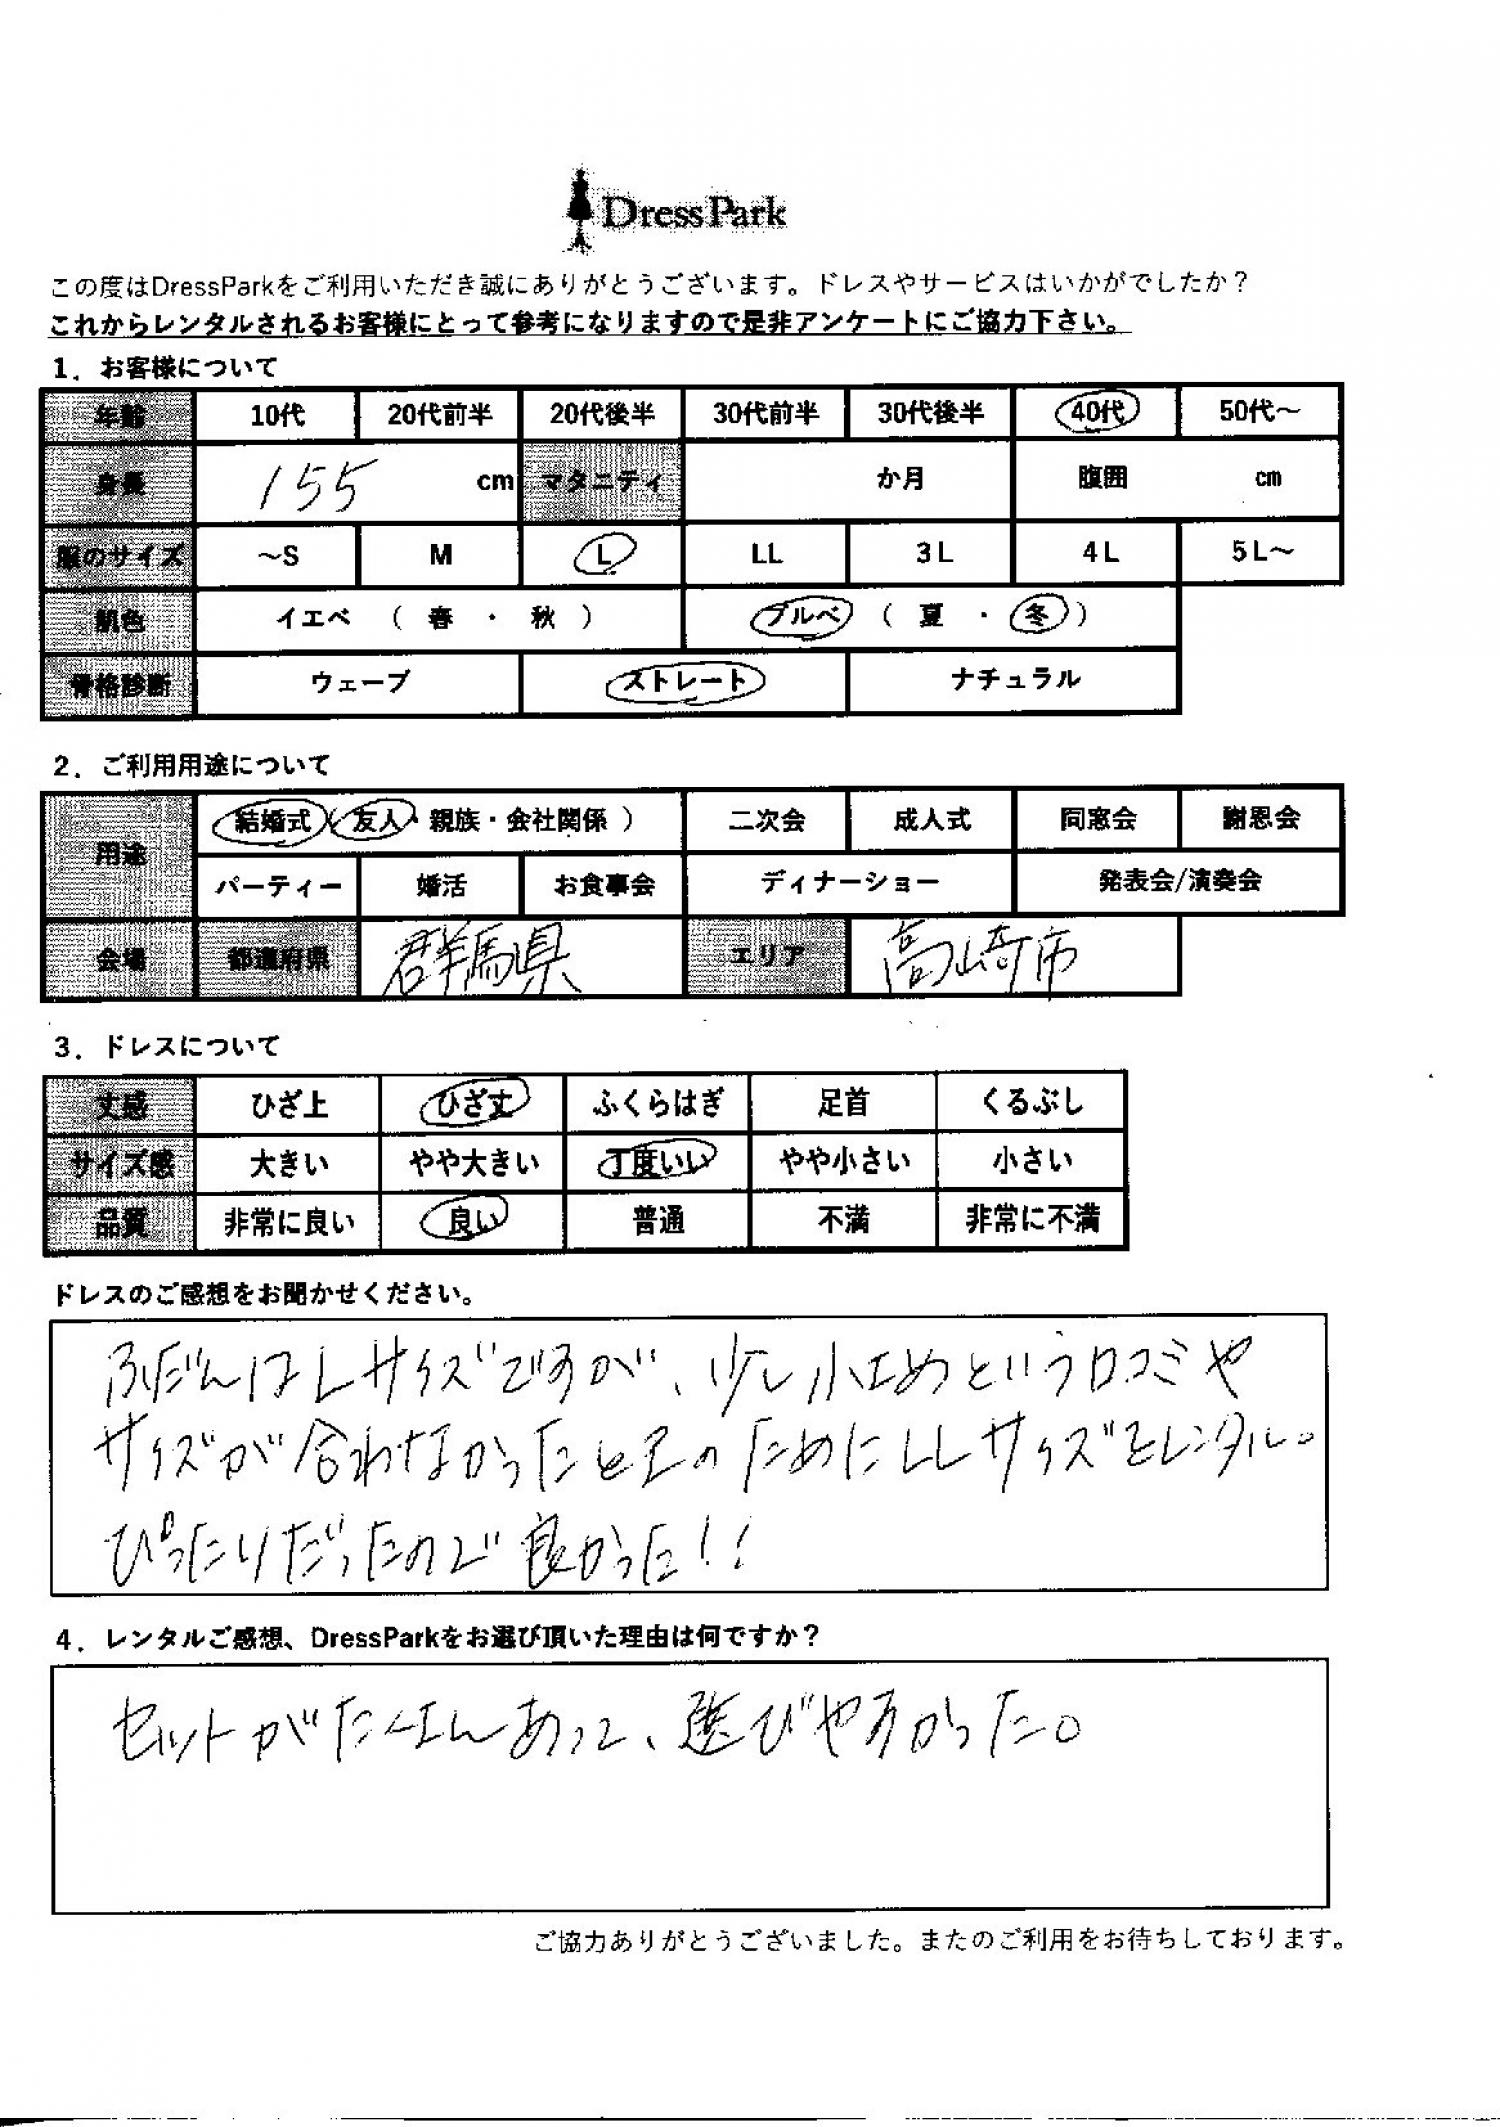 DressPark
この度はDressParkをご利用いただき誠にありがとうございます。ドレスやサービスはいかがでしたか?
これからレンタルされるお客様にとって参考になりますので是非アンケートにご協力下さい。
1．お客様について
年齢 10代 20代前半 20代後半 30代前半 30代後半 40代 50代～
身長 155 cm マタニティ か月 腹囲 cm
服のサイズ ～S M L LL 3L 4L 5L～
肌色 イエベ （ 春 ・ 秋 ） ブルベ （ 夏 ・ 冬 ）
骨格診断 ウェーブ ストレート ナチュラル
2．ご利用用途について
用途 結婚式（友人・親族・会社関係 ） 二次会 成人式 同窓会 謝恩会
パーティー 婚活 お食事会 ディナーショー 発表会/演奏会
会場 都道府県 群馬県 エリア 高崎市
3．ドレスについて
丈感 ひざ上 ひざ丈 ふくらはぎ 足首 くるぶし
サイズ感 大きい やや大きい 丁度いい やや小さい 小さい
品質 非常に良い 良い 普通 不満 非常に不満
ドレスのご感想をお聞かせください。
ふだんはLサイズですが、少し小さめという口コミや
サイズが合わなかったときのためにLLサイズをレンタル。
ぴったりだったので良かった!!
4．レンタルご感想、DressParkをお選び頂いた理由は何ですか?
セットがたくさんあって、選びやすかった。
ご協力ありがとうございました。またのご利用をお待ちしております。